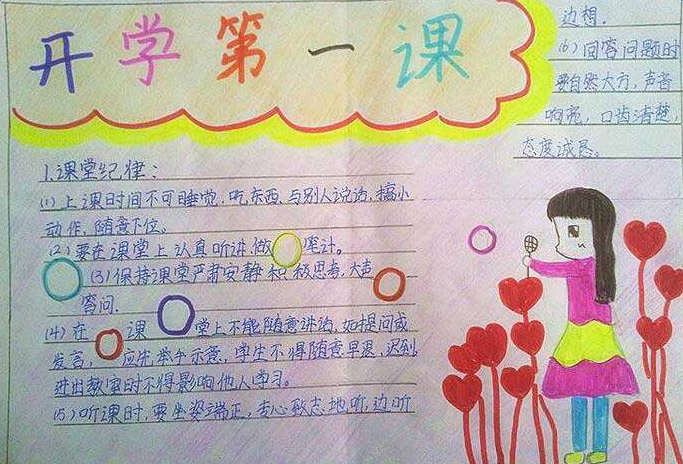 开学第一课
1.课堂纪律:
(1)上课时间不可睡觉.吃东西.与别人说话.搞小
动作.随意下位。
(2)要在课堂上认真听讲.做笔计。
(3)保持课堂严肃安静积极思考,大声
答问.
(4)在课堂上不能随意讲话,如提问或
发言,应先举手示意,学生不得随意早退,迟到
进出教室时不得影响他人学习。
(5)听课时,要坐姿端正,专心致志地听,边听
边想.
(6)回答问题时
要自然大方,声音
响亮,口齿清楚,
态度诚恳。